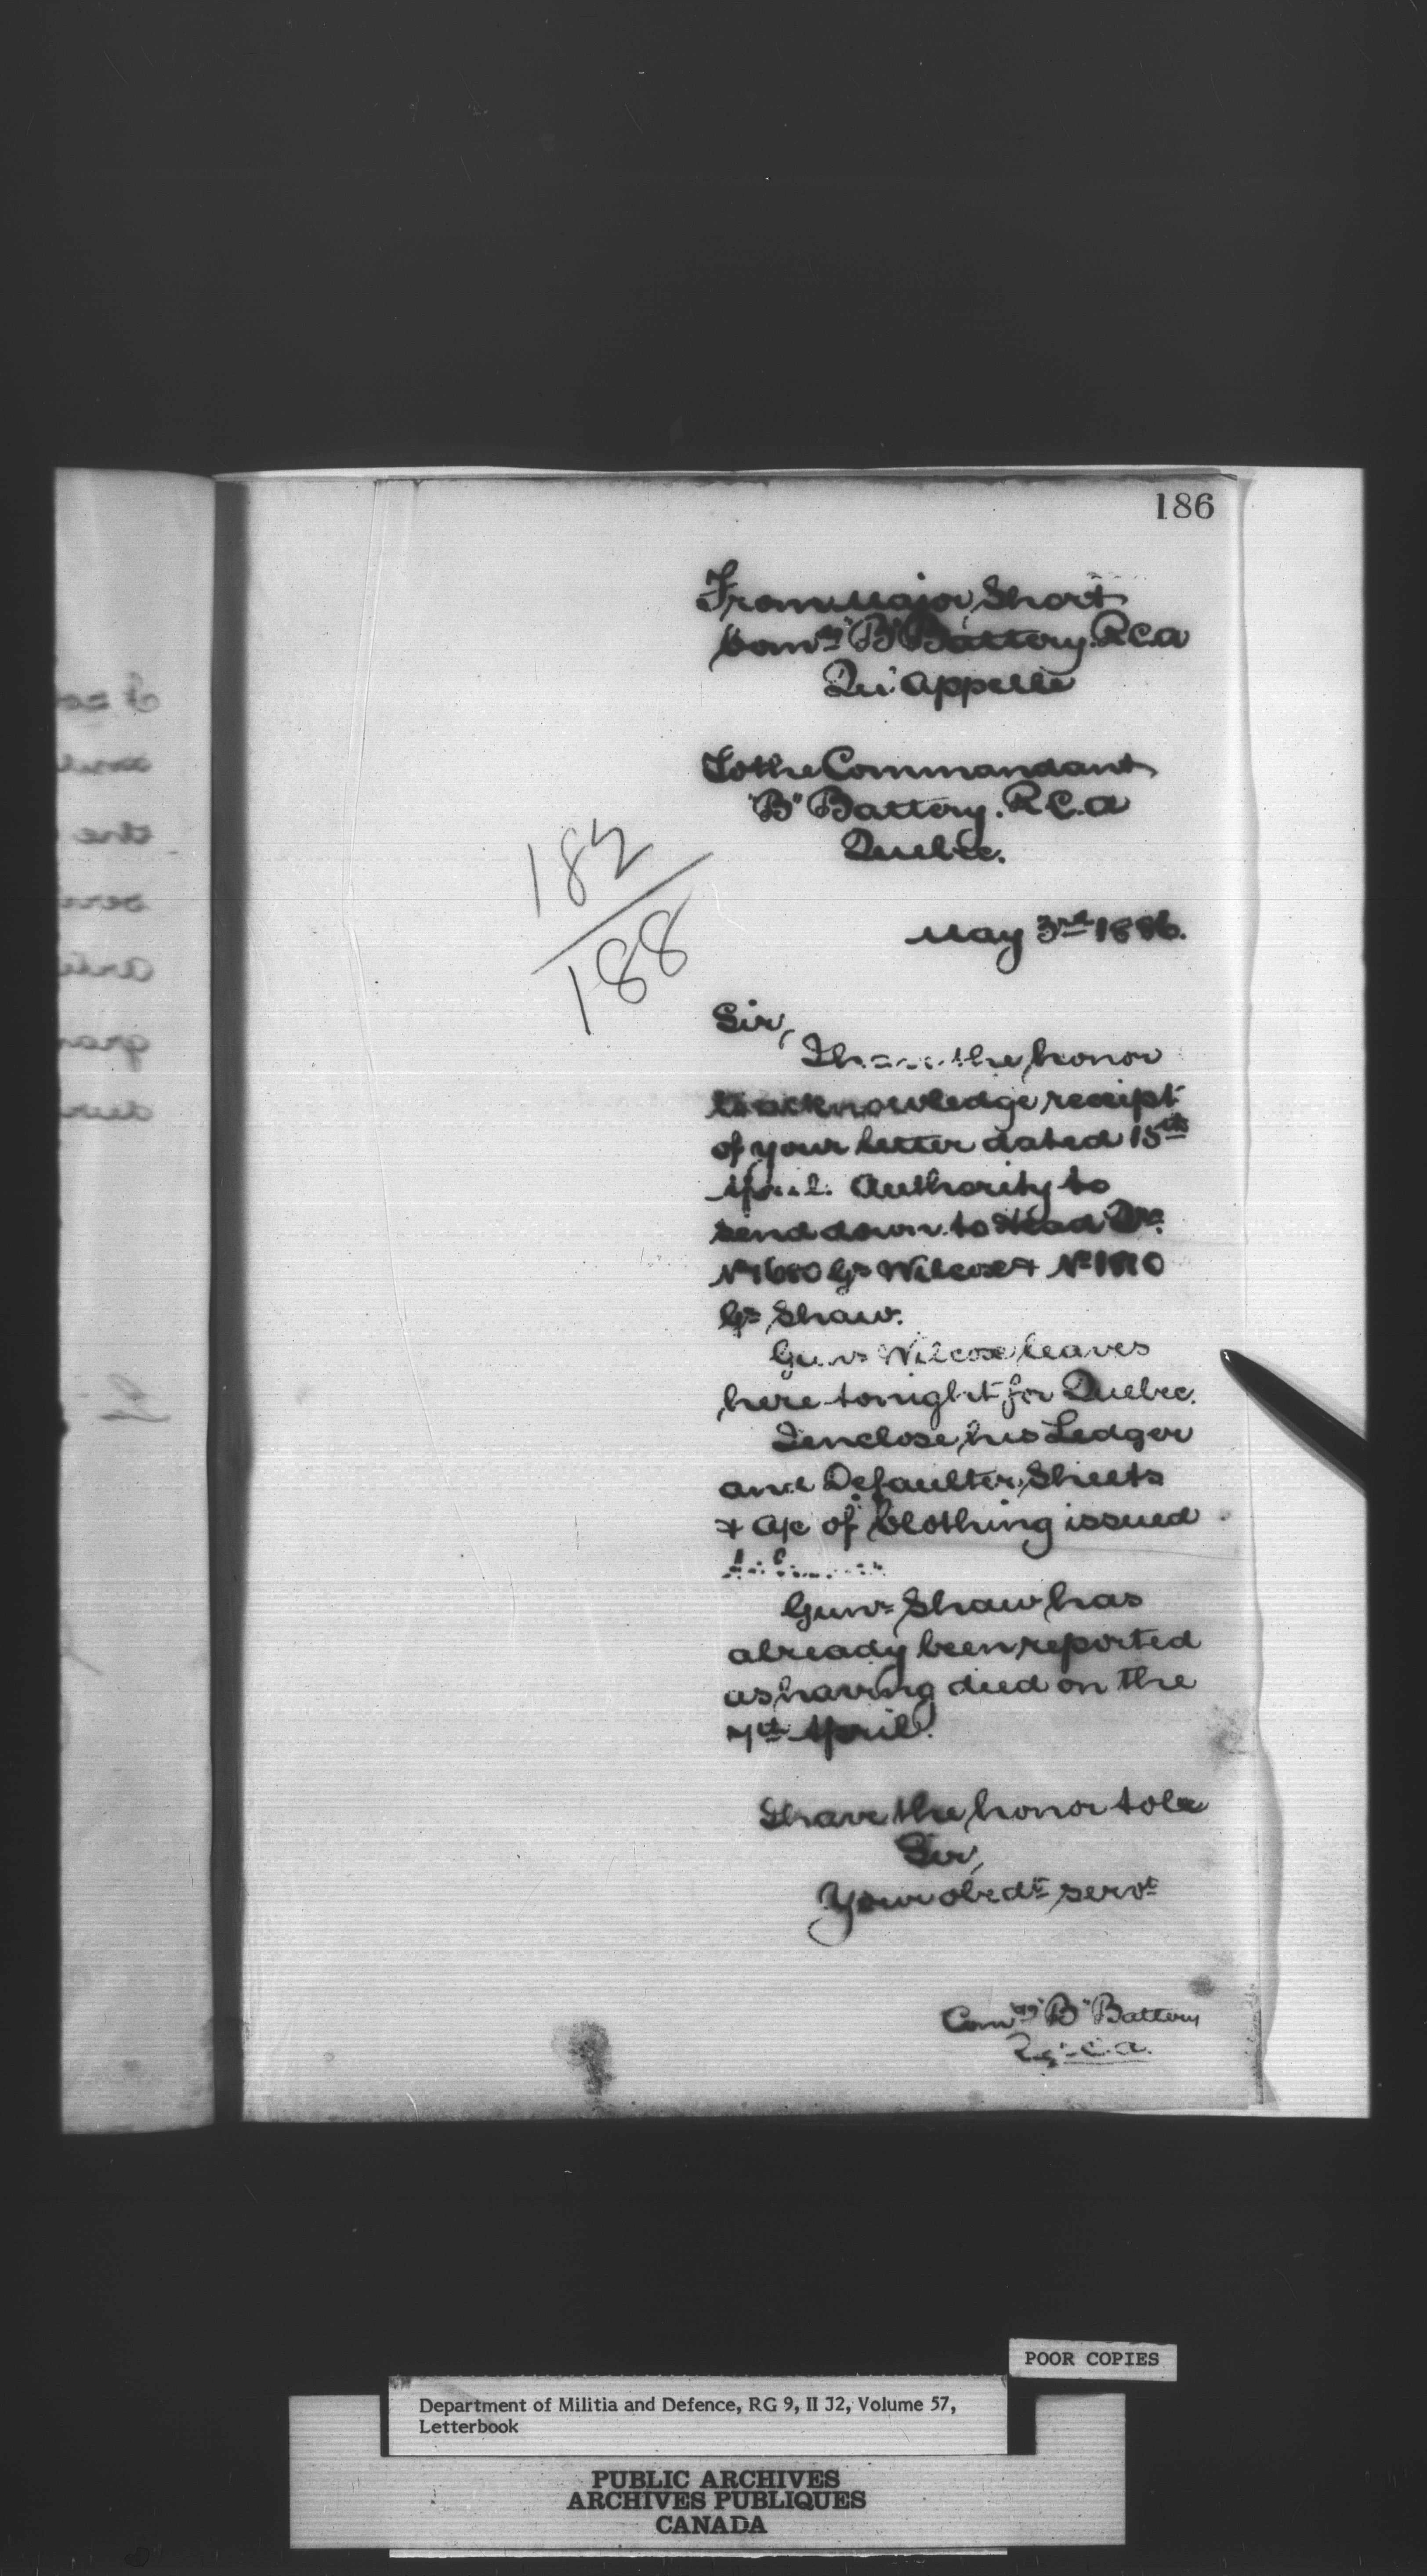 186
From Major Short
Comdg "B" Battery. R.C.A
Qu'Appelle
To the Commandant
"B" Battery. R.C.A
Quebec.
182
188
May 3rd 1886.
Sir,
I have the honor
to acknowledge receipt
of your letter dated 15th
April. Authority to
send down to Head Qrs.
No 1680 Gr Wilcox &
Gr Shaw.
Gunr Wilcox leaves
here tonight for Quebec.
I enclose his Ledger
and Defaulter Sheets
& a/c of Clothing issued
Gunr Shaw has
already been reported
as having died on the
7th April.
I have the honor to be
Sir,
Your obedt servt
Comdg "B" Battery
C.A.
POOR COPIES
Department of Militia and Defence, RG 9, II J2, Volume 57,
Letterbook
PUBLIC ARCHIVES
ARCHIVES PUBLIQUES
CANADA